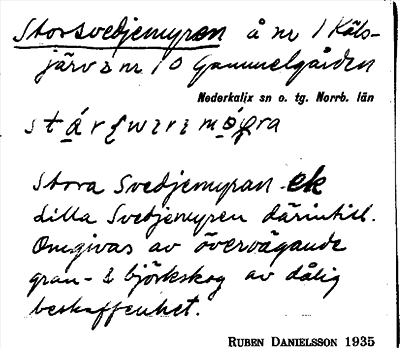 Storsvedjemyran å nr 1 Käls-
järv å nr 10 Gammelgården
Nederkalix sn o. tg. Norrb. län
Stora Svedjemyran ek
Lilla Svedjemyren därintill.
Omgivas av övervägande
gran- & björkskog av dålig
beskaffenhet.
RUBEN DANIELSSON 1935